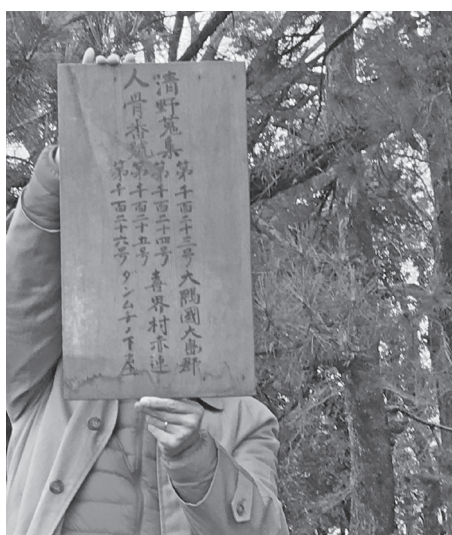 清野蒐集
人骨番號
第千百二十三号
第千百二十四号
第千百二十五号
第千百二十六号
大隅國大島郡
喜界村赤連
タンムチノ下